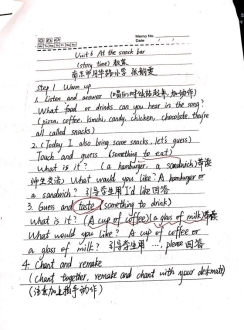 Memo No.
Unit 6 At the snack bar
(story time) 教案
Step 1 Warm up
1. Listen and answer
What food or drinks can you hear in the song?
(pizza, coffee, candy, chicken, chocolate, they're
all called snacks)
2. (Today I also bring some snacks, let's guess)
Touch and guess (something to eat)
What is it? (a hamburger, a sandwich)
What would you like? A hamburger or
a sandwich? 引导学生用 I'd like 回答
3. Guess and taste (something to drink)
What is it? (A cup of coffee)(a glass of milk)
What would you like? A cup of coffee or
a glass of milk? 引导学生用 ..., please 回答
4. Chant and remake
(chant together, remake and chant with your deskmate)
(注意加上拍手动作)